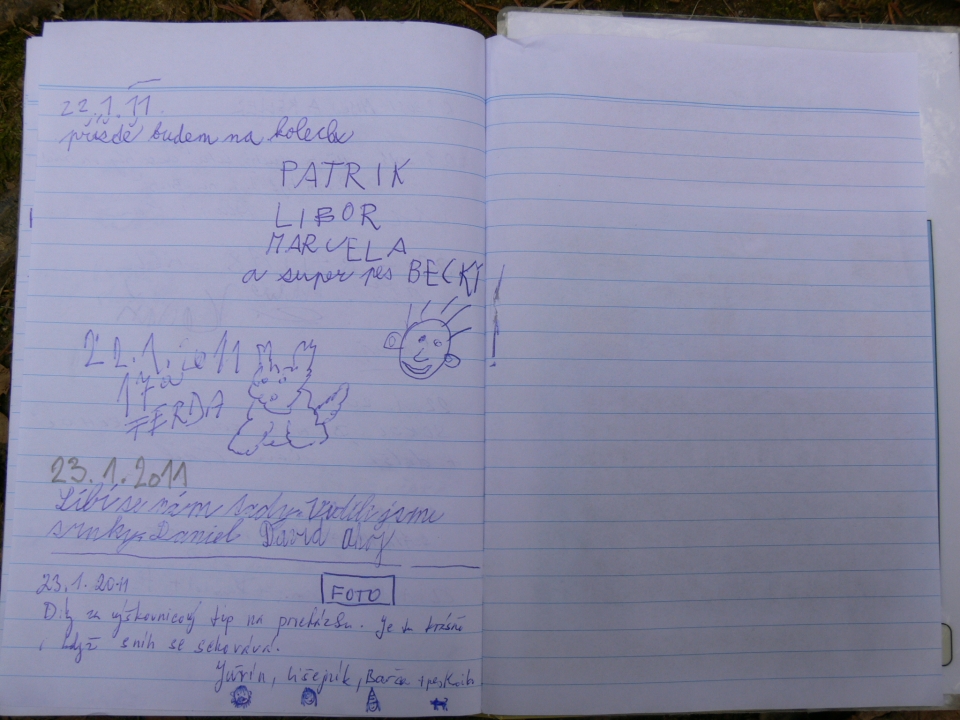 22.1.11
příště budem na kolech
PATRIK
LIBOR
MARCELA
a super pes BECKY!
22.1. 11
FERDA
23.1.2011
Líbí se nám tady. Viděli jsme
srnky. Daniel David Ahoj
23.1.2011 FOTO
Díky za výškovnicový tip na procházku. Je to krásně
, když sníh se schovává.
Jiřín, Lišejník, Barča + pes